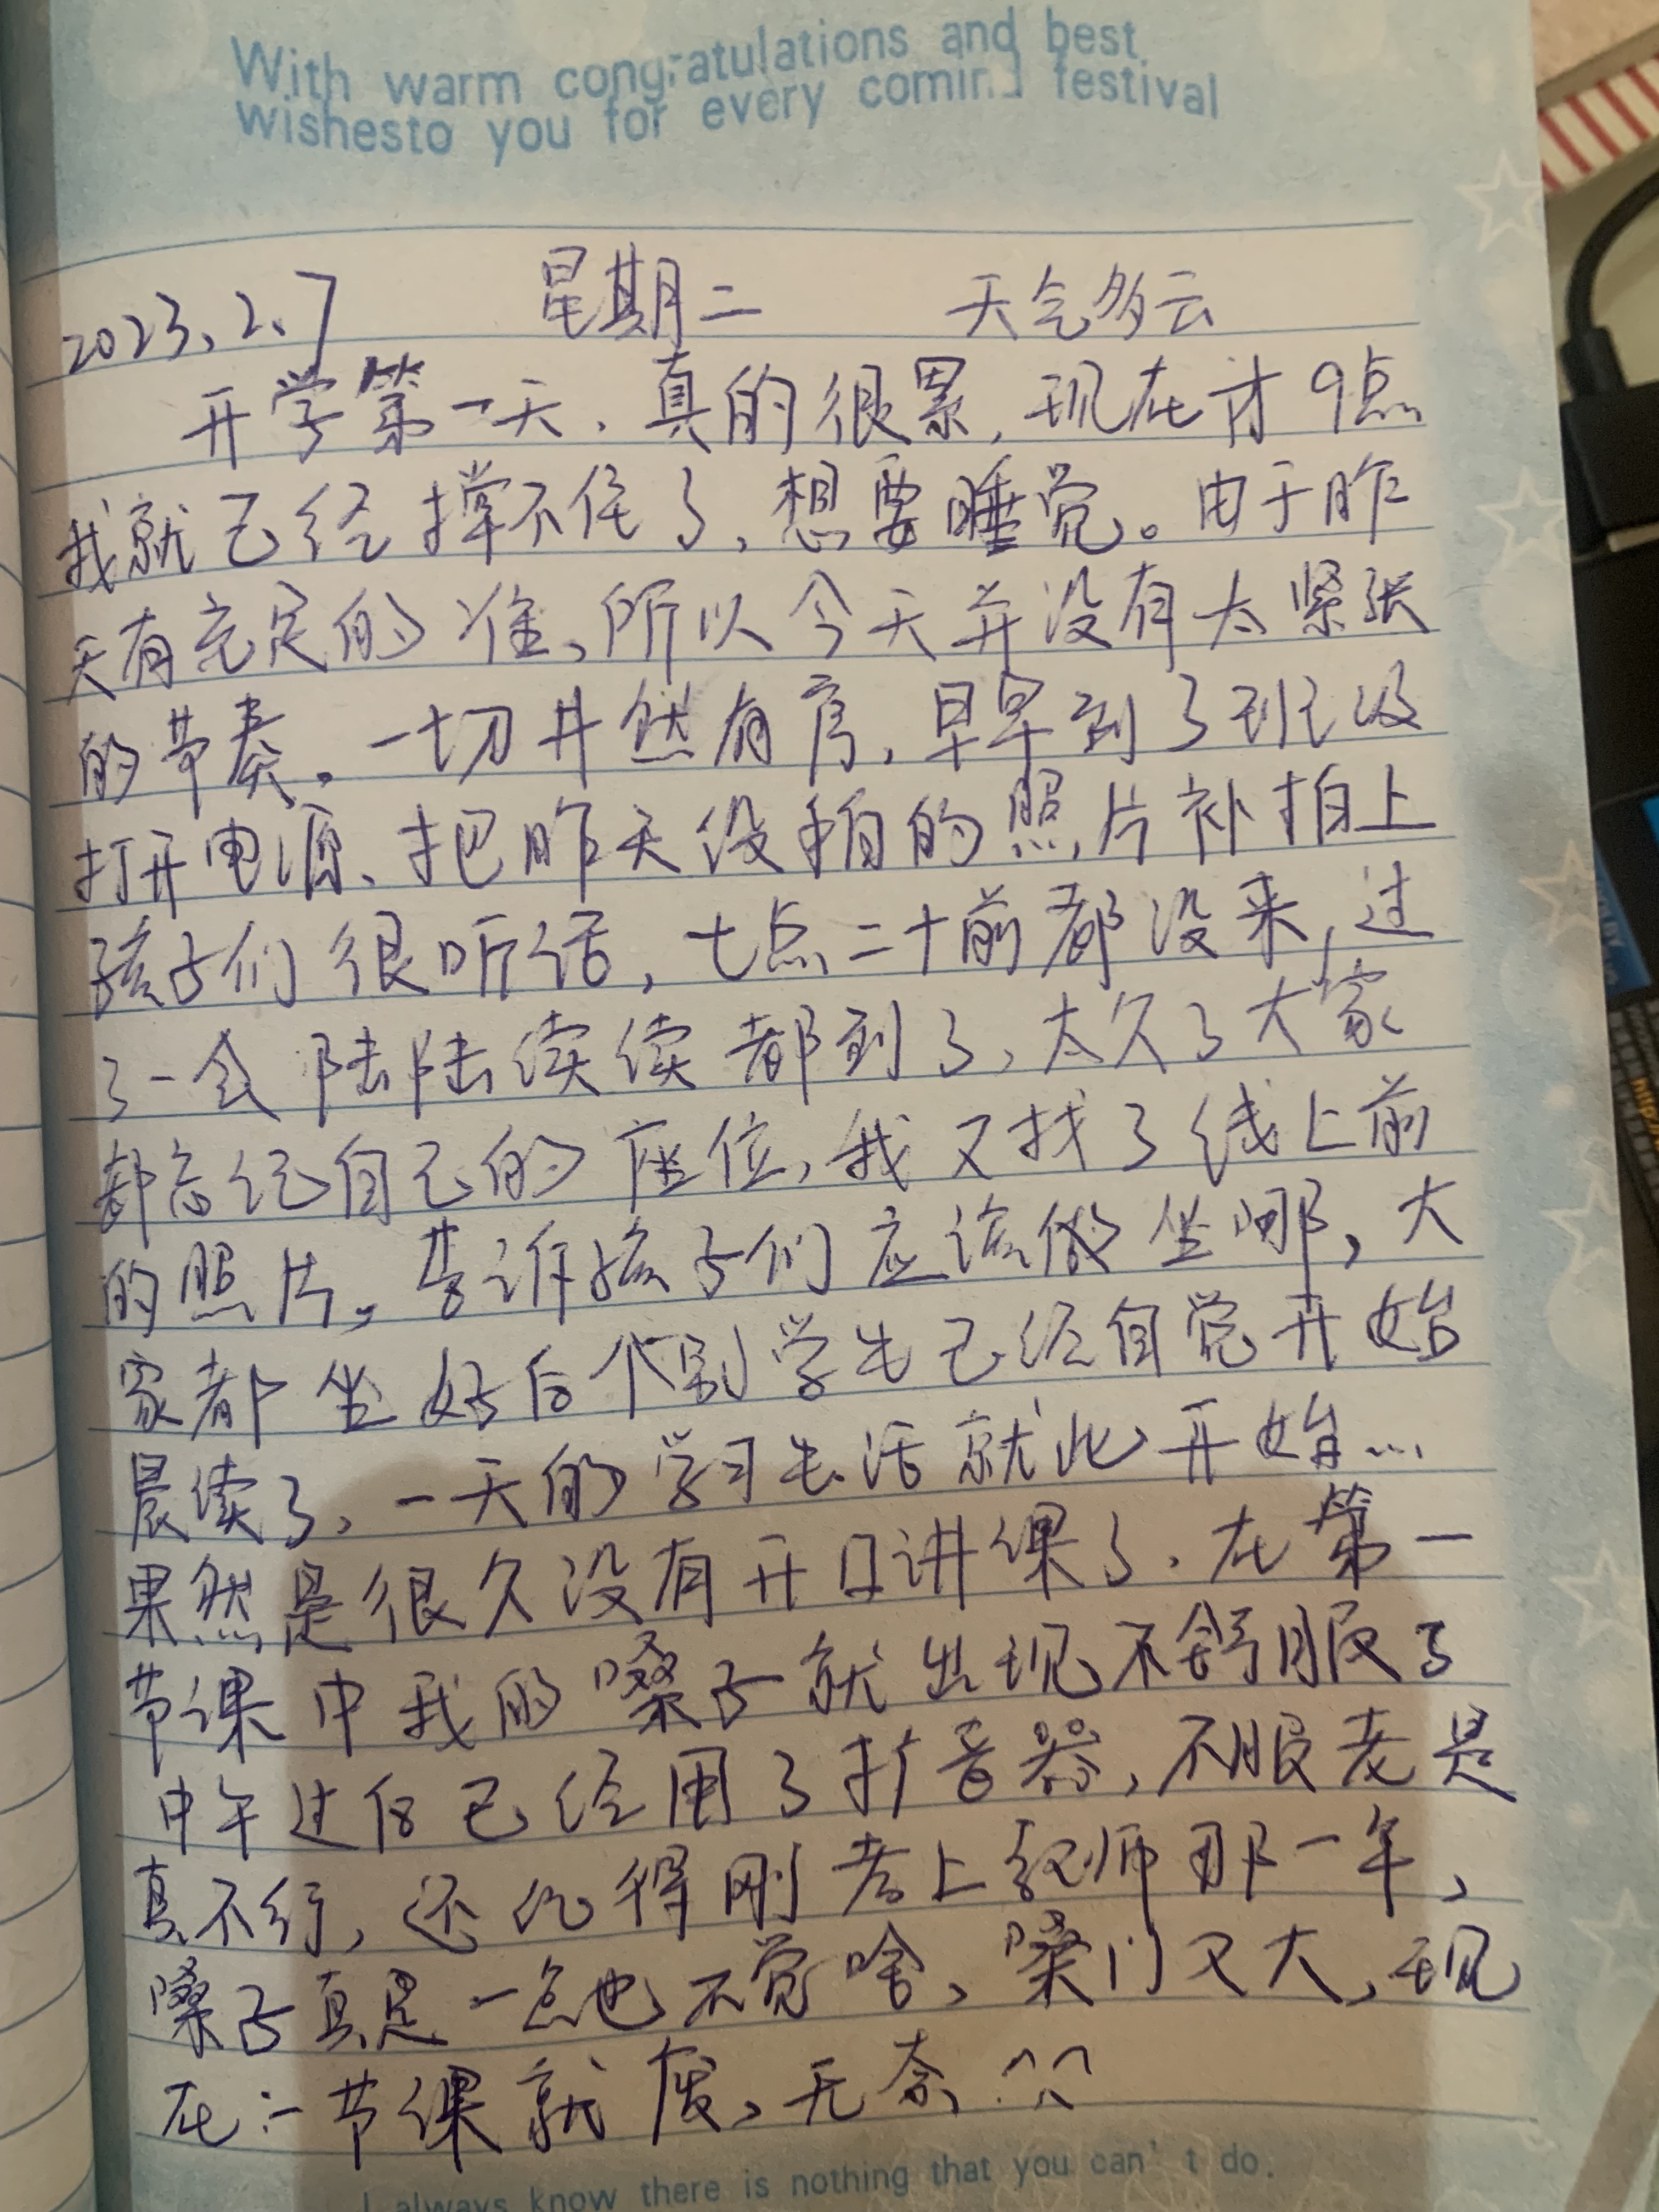 With warm congratulations and best
wishesto you for every coming festival
2023.2.7 星期二 天气多云
开学第一天、真的很累,现在才9点
我就已经撑不住了,想要睡觉。由于昨
天有充足的准,所以今天并没有太紧张
的节奏。一切井然有序,早早到了班级
打开电源、把昨天没拍的照片补拍上
孩子们很听话,七点二十前都没来,过
了一会陆陆续续都到了,太久了大家
都忘记自己的座位,我又找了线上前
的照片。告诉孩子们应该做坐哪,大
家都坐好后个别学生已经自觉开始
晨续了,一天的学习生活就此开始...
果然是很久没有开口讲课了.在第一
节课中我的嗓子就出现不舒服了
中午过后已经用了扩音器,不服老是
真不行,还记得刚考上教师那一年,
嗓子真是一点也不觉啥,嗓门又大,现
在:一节课就废,无奈
I always know there is nothing that you can't do.